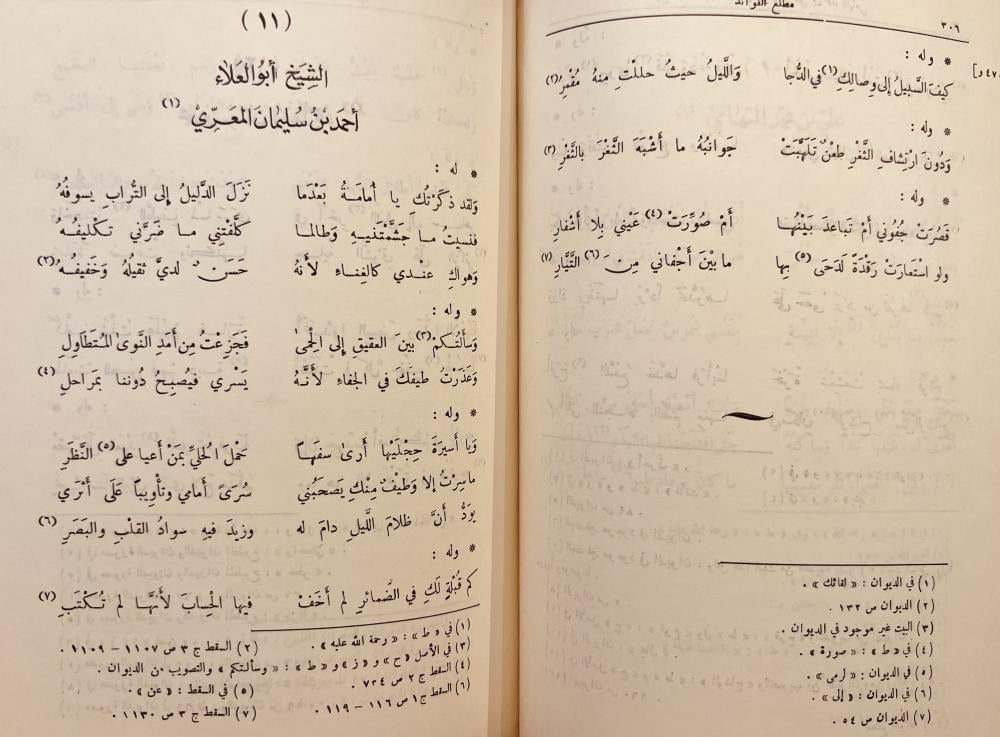 ٣٠٦
مطلع الفوائد
٤٧ و]
* وله :
كيفَ السَّبيلُ إلى وِصالِكِ(١) في الدُّجا وَاللَّيلُ حيثُ حللتِ مِنهُ مُقْمِرُ(٢)
* وله :
وَدُونَ ارْتِشافِ الثَّغْرِ طِعْنٌ تَلَهَّبَتْ جَوانبُهُ ما أَشْبَهَ الثَّغْرَ بالثَّغْرِ(٣)
* وله :
قَصُرَتْ جُفُوني أمْ تَباعدَ بَيْنُهُا أمْ صُوِّرَتْ(٤) عَيْني بِلا أشْفارِ
ولو اسْتَعارَتْ رَقْدَةً لَدَحَى(٥) بِها ما بَيْنَ أجْفاني مِنَ(٦) التَّيَّارِ(٧)
(١) في الديوان : « لقائك » .
(٢) الديوان ص ١٣٢ .
(٣) البيت غير موجود في الديوان .
(٤) في « ط » : « صورة » .
(٥) في الديوان : « لرمى » .
(٦) في الديوان : « إلى » .
(٧) الديوان ص ٥٤ .
( ١١ )
الشيخ أبو العلاء
أحمد بن سليمان المعرّي(١)
* له :
ولقد ذكَرْتُك يا أُمامَةُ بَعْدَما نَزَلَ الدَّليلُ إلى التُّرابِ يسوفُهُ
فنسيتُ ما جَشَّمْتَنيهِ وَطالما كلَّفْتِني ما ضَرَّني تكْليفُهُ
وَهواكِ عنْدي كالغِناءِ لأنهُ حَسَنٌ لديَّ ثَقيلُهُ وَخَفيفُهُ(٢)
* وله :
وَسأَلتُكمْ(٣) بينَ العقيقِ إلى الحِمىٰ فَجَزِعْتُ مِن أمَدِ النَّوىٰ المُتَطاوِلِ
وَعَذَرْتُ طيفَكَ في الجفاءِ لأنَّهُ يَسْري فيُصبِحُ دُوننا بمَراحلِ(٤)
* وله :
وَيا أسيرَةَ حِجْلَيْها أرىٰ سفهَاً حَمْلَ الحُليِّ بمَنْ أعيا على(٥) النَّظَرِ
ماسِرْتُ إلا وَطيفٌ مِنْكِ يَصحَبُني سُرَىً أمامي وتأْويباً عَلَى أثَري
يودُّ أنَّ ظلامَ اللَّيلِ دامَ له وزيدَ فيهِ سوادُ القلْبِ والبَصَرِ(٦)
* وله :
كم قُبْلةٍ لكِ في الضَّمائرِ لم أخَفْ فيها الحِسابَ لأنهَّا لم تُكْتَبِ(٧)
(١) في « ط » : « رحمة الله عليه » . (٢) السقط ج ٣ ص ١١٠٧ – ١١٠٩ .
(٣) في الأصل « ح » و « ز » و « ط » : « وسألتكم » والتصويب من الديوان .
(٤) السقط ج ٢ ص ٧٢٤ . (٥) في السقط : « عن » .
(٦) السقط ج ١ ص ١١٦ – ١١٩ . (٧) السقط ج ٣ ص ١١٣٠ .